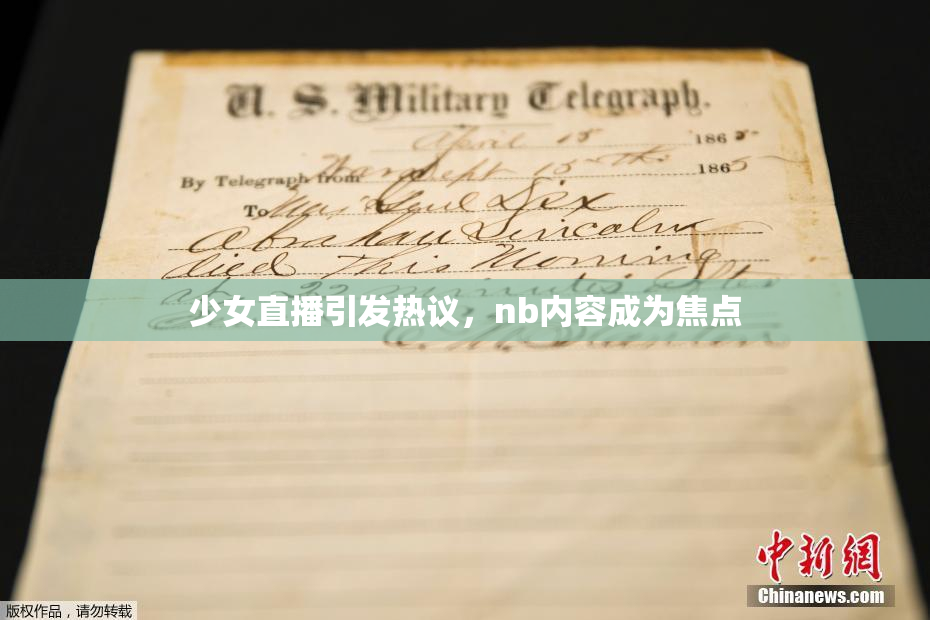 U. S. Military Telegraph.
April 15 1865
By Telegraph from War Dept 15th 1865
To Maj Genl Dix
Abraham Lincoln
died This Morning
at 22 minutes after
少女直播引发热议，nb内容成为焦点
E. M. Stanton
中新网
Chinanews.com
版权作品，请勿转载